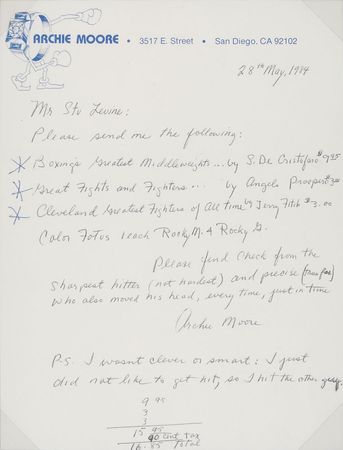 ARCHIE MOORE • 3517 E. Street • San Diego, CA 92102
28th May, 1984
Mr Stu Levine:
Please send me the following:
Boxing's Greatest Middleweights... by S. De Cristofaro $9.95
Great Fights and Fighters... by Angelo Prospero $3.00
Cleveland Greatest Fighters of All time by Jerry Fitch $3.00
Color Fotos 1 each Rocky M. & Rocky G.
Please find Check from the
Sharpest hitter (not hardest) and precise
who also moved his head, every time, just in time
Archie Moore
P.S. I wasn't clever or smart: I just
did not like to get hit, so I hit the other guy.
9 95
3
3
15 95
90 cent Tax
16.85 Total